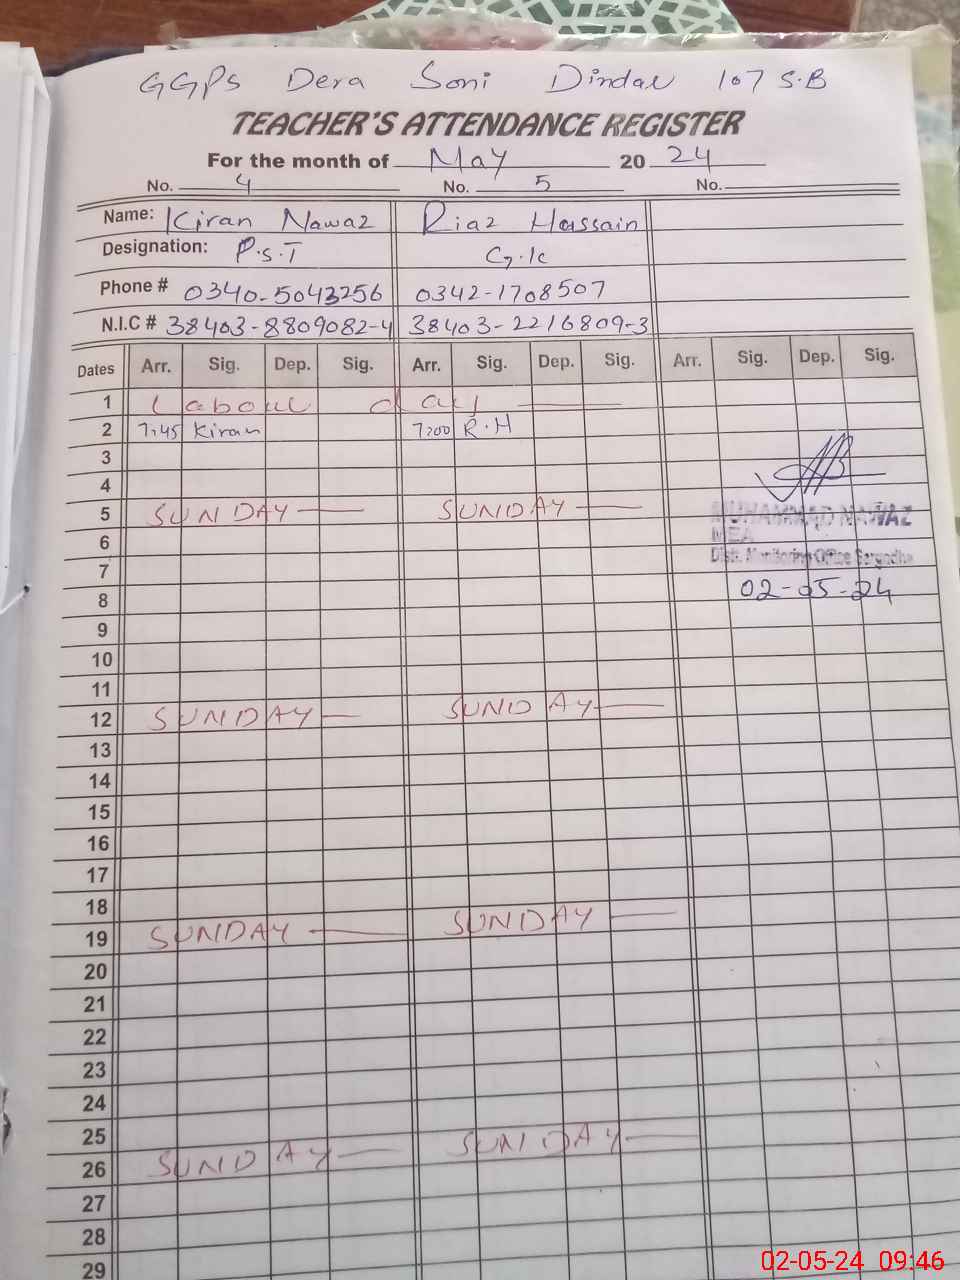 GGPS Dera Soni Dindar 107 S.B
TEACHER'S ATTENDANCE REGISTER
For the month of May 20 24
No. 4 No. 5 No.
Name: Kiran Nawaz Riaz Hassain
Designation: P.S.T
Phone # 0340-5043256 0342-1708507
N.I.C # 38403-8809082-4 38403-2216809-3
Dates Arr. Sig. Dep. Sig. Arr. Sig. Dep. Sig. Arr. Sig. Dep. Sig.
1 Labour day
2 7:45 Kiran 7:00 R.H
3
4
5 SUNDAY SUNDAY
MUHAMMAD NAWAZ
6
MEA
7
Distt. Monitoring Office Sargodha
8 02-05-24
9
10
11
12 SUNDAY SUNDAY
13
14
15
16
17
18
19 SUNDAY SUNDAY
20
21
22
23
24
25
26 SUNDAY SUNDAY
27
28
29
02-05-24 09:46